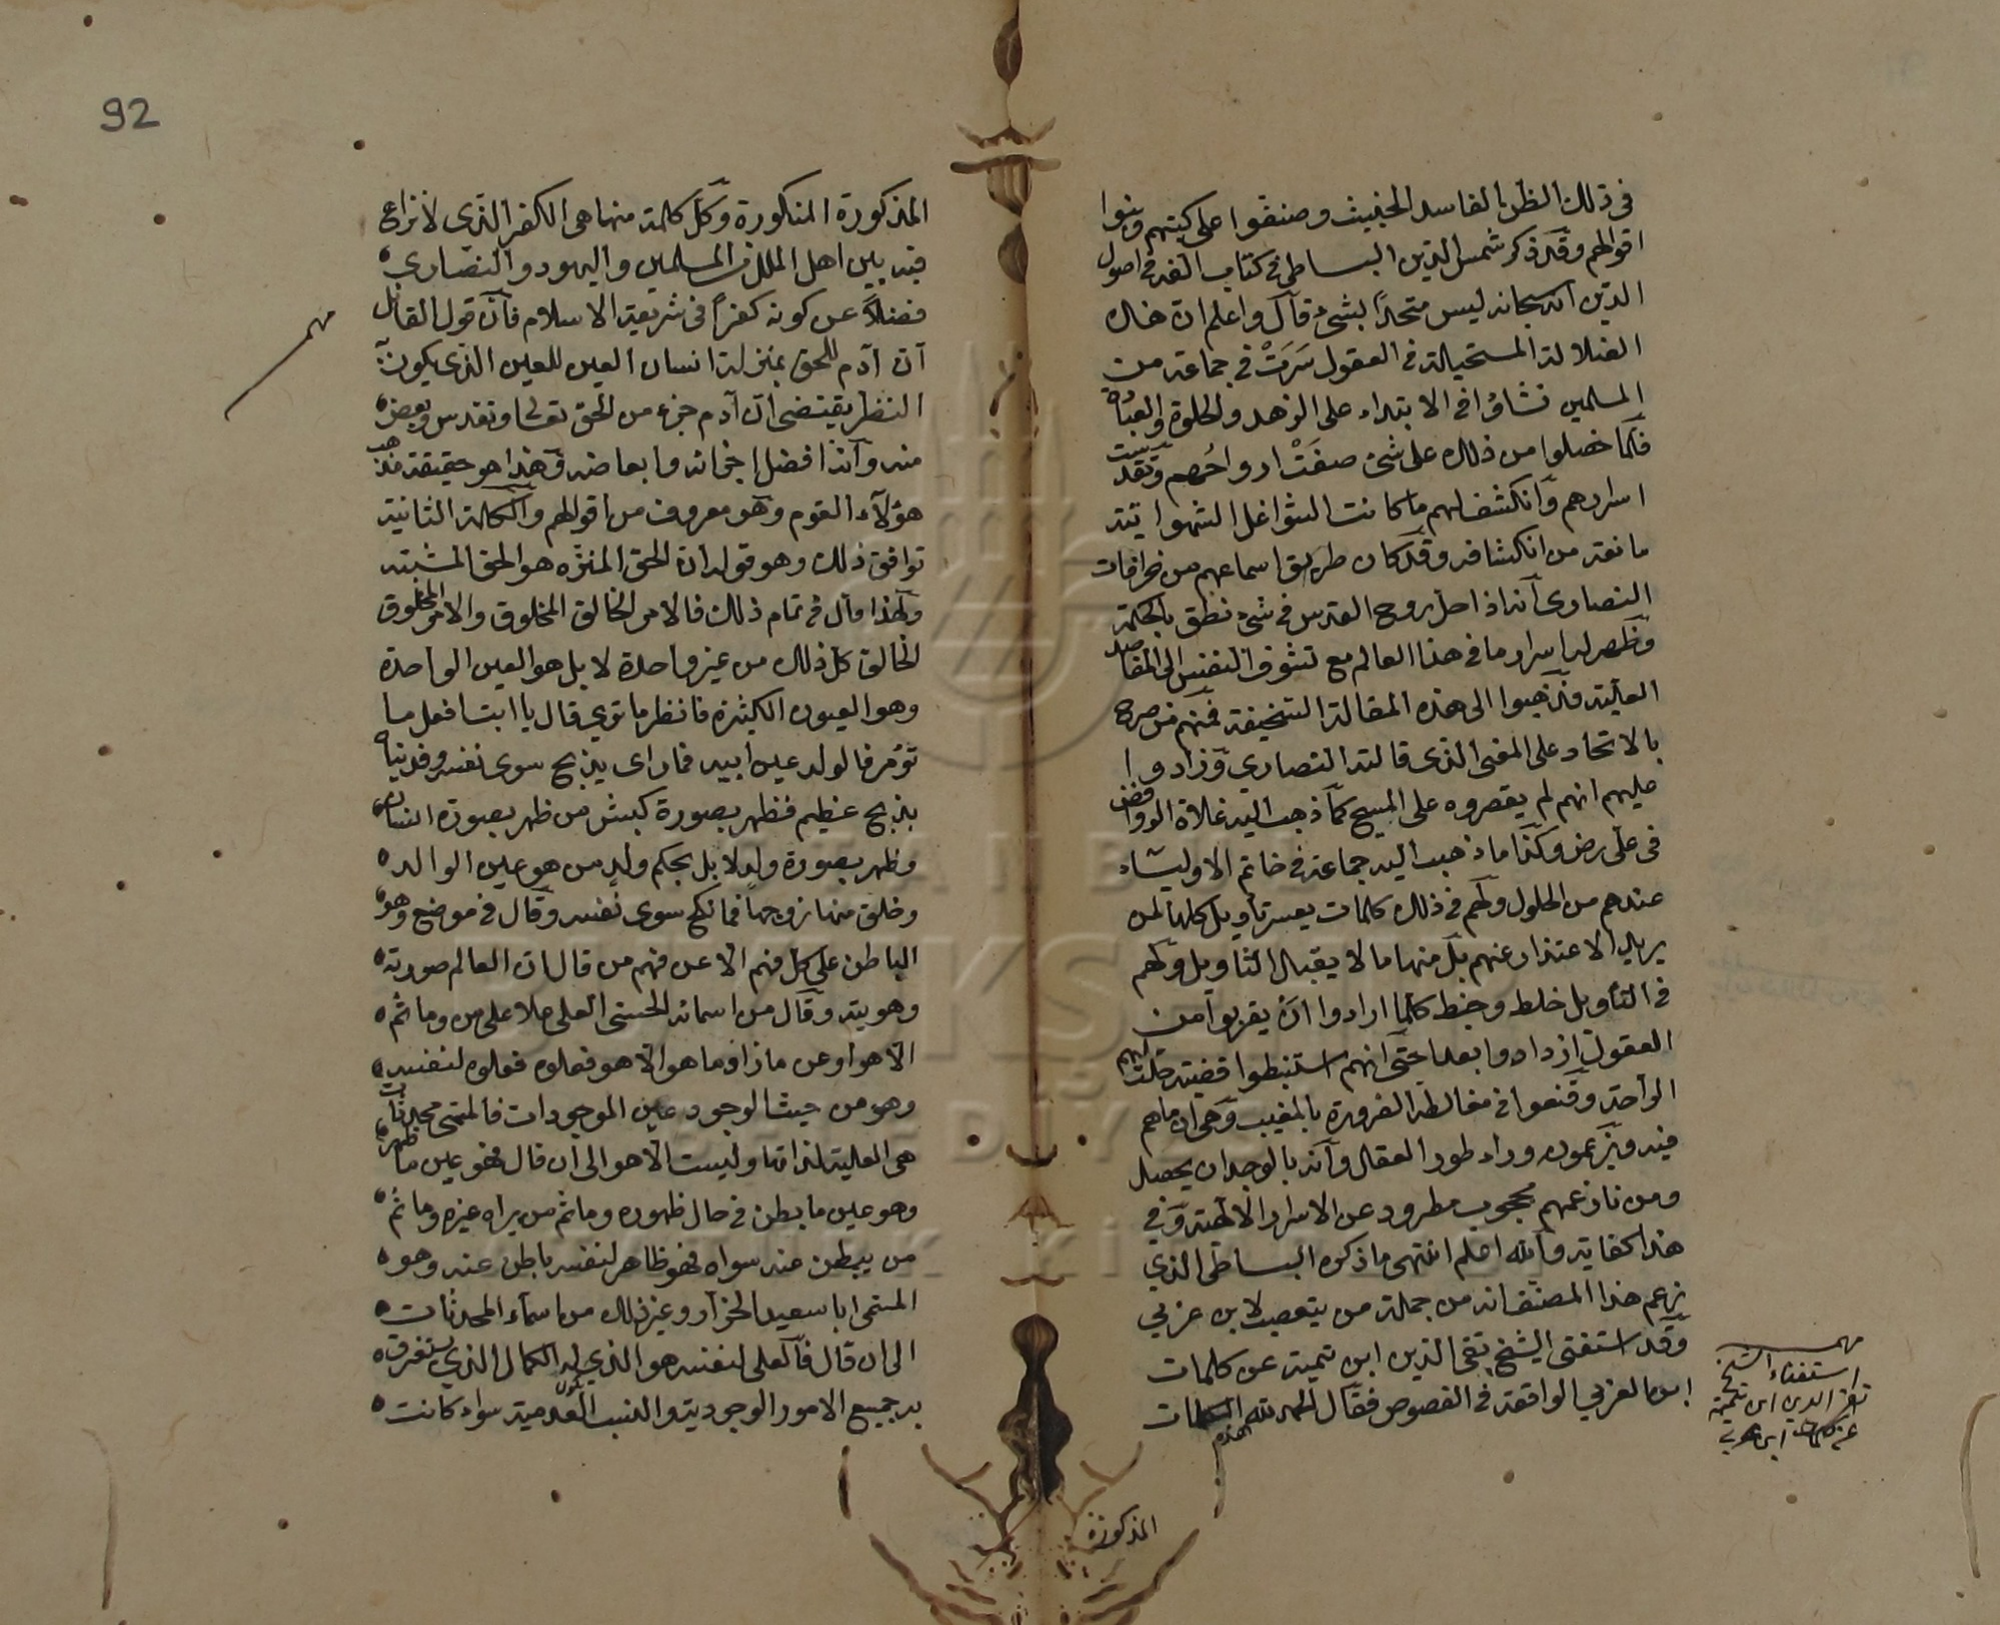 فى ذلك الظن الفاسد الخبيث وصنفوا على كيتهم وبنوا
اقوالهم وقد ذكر شمس الدين البساطى فى كتاب له فى اصول
الدين انه سبحانه ليس متحدًا بشئ قال واعلم ان هذه
الضلالة المستحيلة فى العقول سَرَتْ فى جماعة من
المسلمين نشاؤا فى الابتداء على الزهد والخلوة والعبادة
فلما حصلوا من ذلك على شئ صفَتْ ارواحُهم وتقدست
اسرارهم وانكشف لهم ما كانت الشواغل الشهوانية
مانعة من انكشافه وقد كان طريق اسماعهم من خرافات
النصارى انه اذا حل روح القدس فى شئ نطق بالحكمة
وظهر له اسرار ما فى هذا العالم مع تشوف النفس الى المقاصد
العالية فذهبوا الى هذه المقالة السخيفة فمنهم من صرح
بالاتحاد على المعنى الذى قالته النصارى وزادوا
عليهم انهم لم يقصروه على المسيح كما ذهب اليه غلاة الروافض
فى على رض وكذا ما ذهبت اليه جماعة فى خاتم الاولياء
عندهم من الحلول ولهم فى ذلك كلمات يعسر تأويل كلها لمن
يريد الاعتذار عنهم بل منها ما لا يقبل التاويل ولهم
فى التأويل خلط وخبط كلما ارادوا ان يقربوا من
العقول ازدادوا بعدا حتى انهم استنبطوا قضية حلت لهم
الراحة وقنعوا فى مغالطة الضرورة بالمغيب وهى ان ما هم
فيه ويزعمون وراء طور العقل وانه بالوجدان يحصل
ومن نازعهم محجوب مطرود عن الاسرار الالهية وفى
هذا كفاية والله اعلم انتهى ما ذكره البساطى الذى
زعم هذا المصنف انه من جملة من يتعصب لابن عربي
وقد استفتى الشيخ تقى الدين ابن تيمية عن كلمات
ابن العربي الواقعة فى الفصوص فقال الحمد لله الكلمات
هذه
المذكورة
مهم
استفتاء الشيخ
تقى الدين ابن تيمية
عن كلمات ابن عربي
92
المذكورة المنكورة وكل كلمة منها هى الكفر الذى لا نزاع
فيه بين اهل الملل من المسلمين واليهود والنصارى
فضلاً عن كونه كفرًا فى شريعة الاسلام فان قول القائل
ان آدم للحق بمنزلة انسان العين للعين الذى يكون به
النظر يقتضى ان آدم جزء من الحق تعالى وتقدس وبعض
منه وانه افضل اجزائه وابعاضه وهذا هو حقيقة مذهب
هؤلآء القوم وهو معروف من اقوالهم والكلمة الثانية
توافق ذلك وهو قوله ان الحق المنزّه هو الحق المشبه
ولهذا قال فى تمام ذلك فالامر الخالق المخلوق والامر المخلوق
الخالق كل ذلك من عين واحدة لا بل هو العين الواحدة
وهو العيون الكثيرة فانظر ما ترى قال يا ابت افعل ما
تؤمر فالولد عين ابيه فما راى يذبح سوى نفسه وفديناه
بذبح عظيم فظهر بصورة كبش من ظهر بصورة انسان
وظهر بصورة ولد لا بل بحكم ولد من هو عين الوالد
وخلق منها زوجها فما نكح سوى نفسه وقال فى موضع وهو
الباطن على كل فهم الا عن فهم من قال ان العالم صورته
وهويته وقال من اسمائه الحسنى العلى علا على من وما ثم
الا هو او عن ماذا وما هو الا هو فعلوه فعلوه لنفسه
وهو من حيث الوجود عين الموجودات فالمسمى محدثات
هى العلية لذاتها وليست الا هو الى ان قال فهو عين ما ظهر
وهو عين ما بطن فى حال ظهوره وما ثم من يراه غيره وما ثَم
من يبطن عنه سواه فهو ظاهر لنفسه باطن عنه وهو
المسمى ابا سعيد الخراز وغير ذلك من اسماء المحدثات
الى ان قال فالعلى لنفسه هو الذي له الكمال الذي يستغرق
به جميع الامور الوجودية والنسب العدمية سواء كانت
مهم